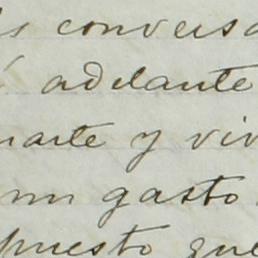 conversa
adelante
marte y viv
un gasto
puesto que